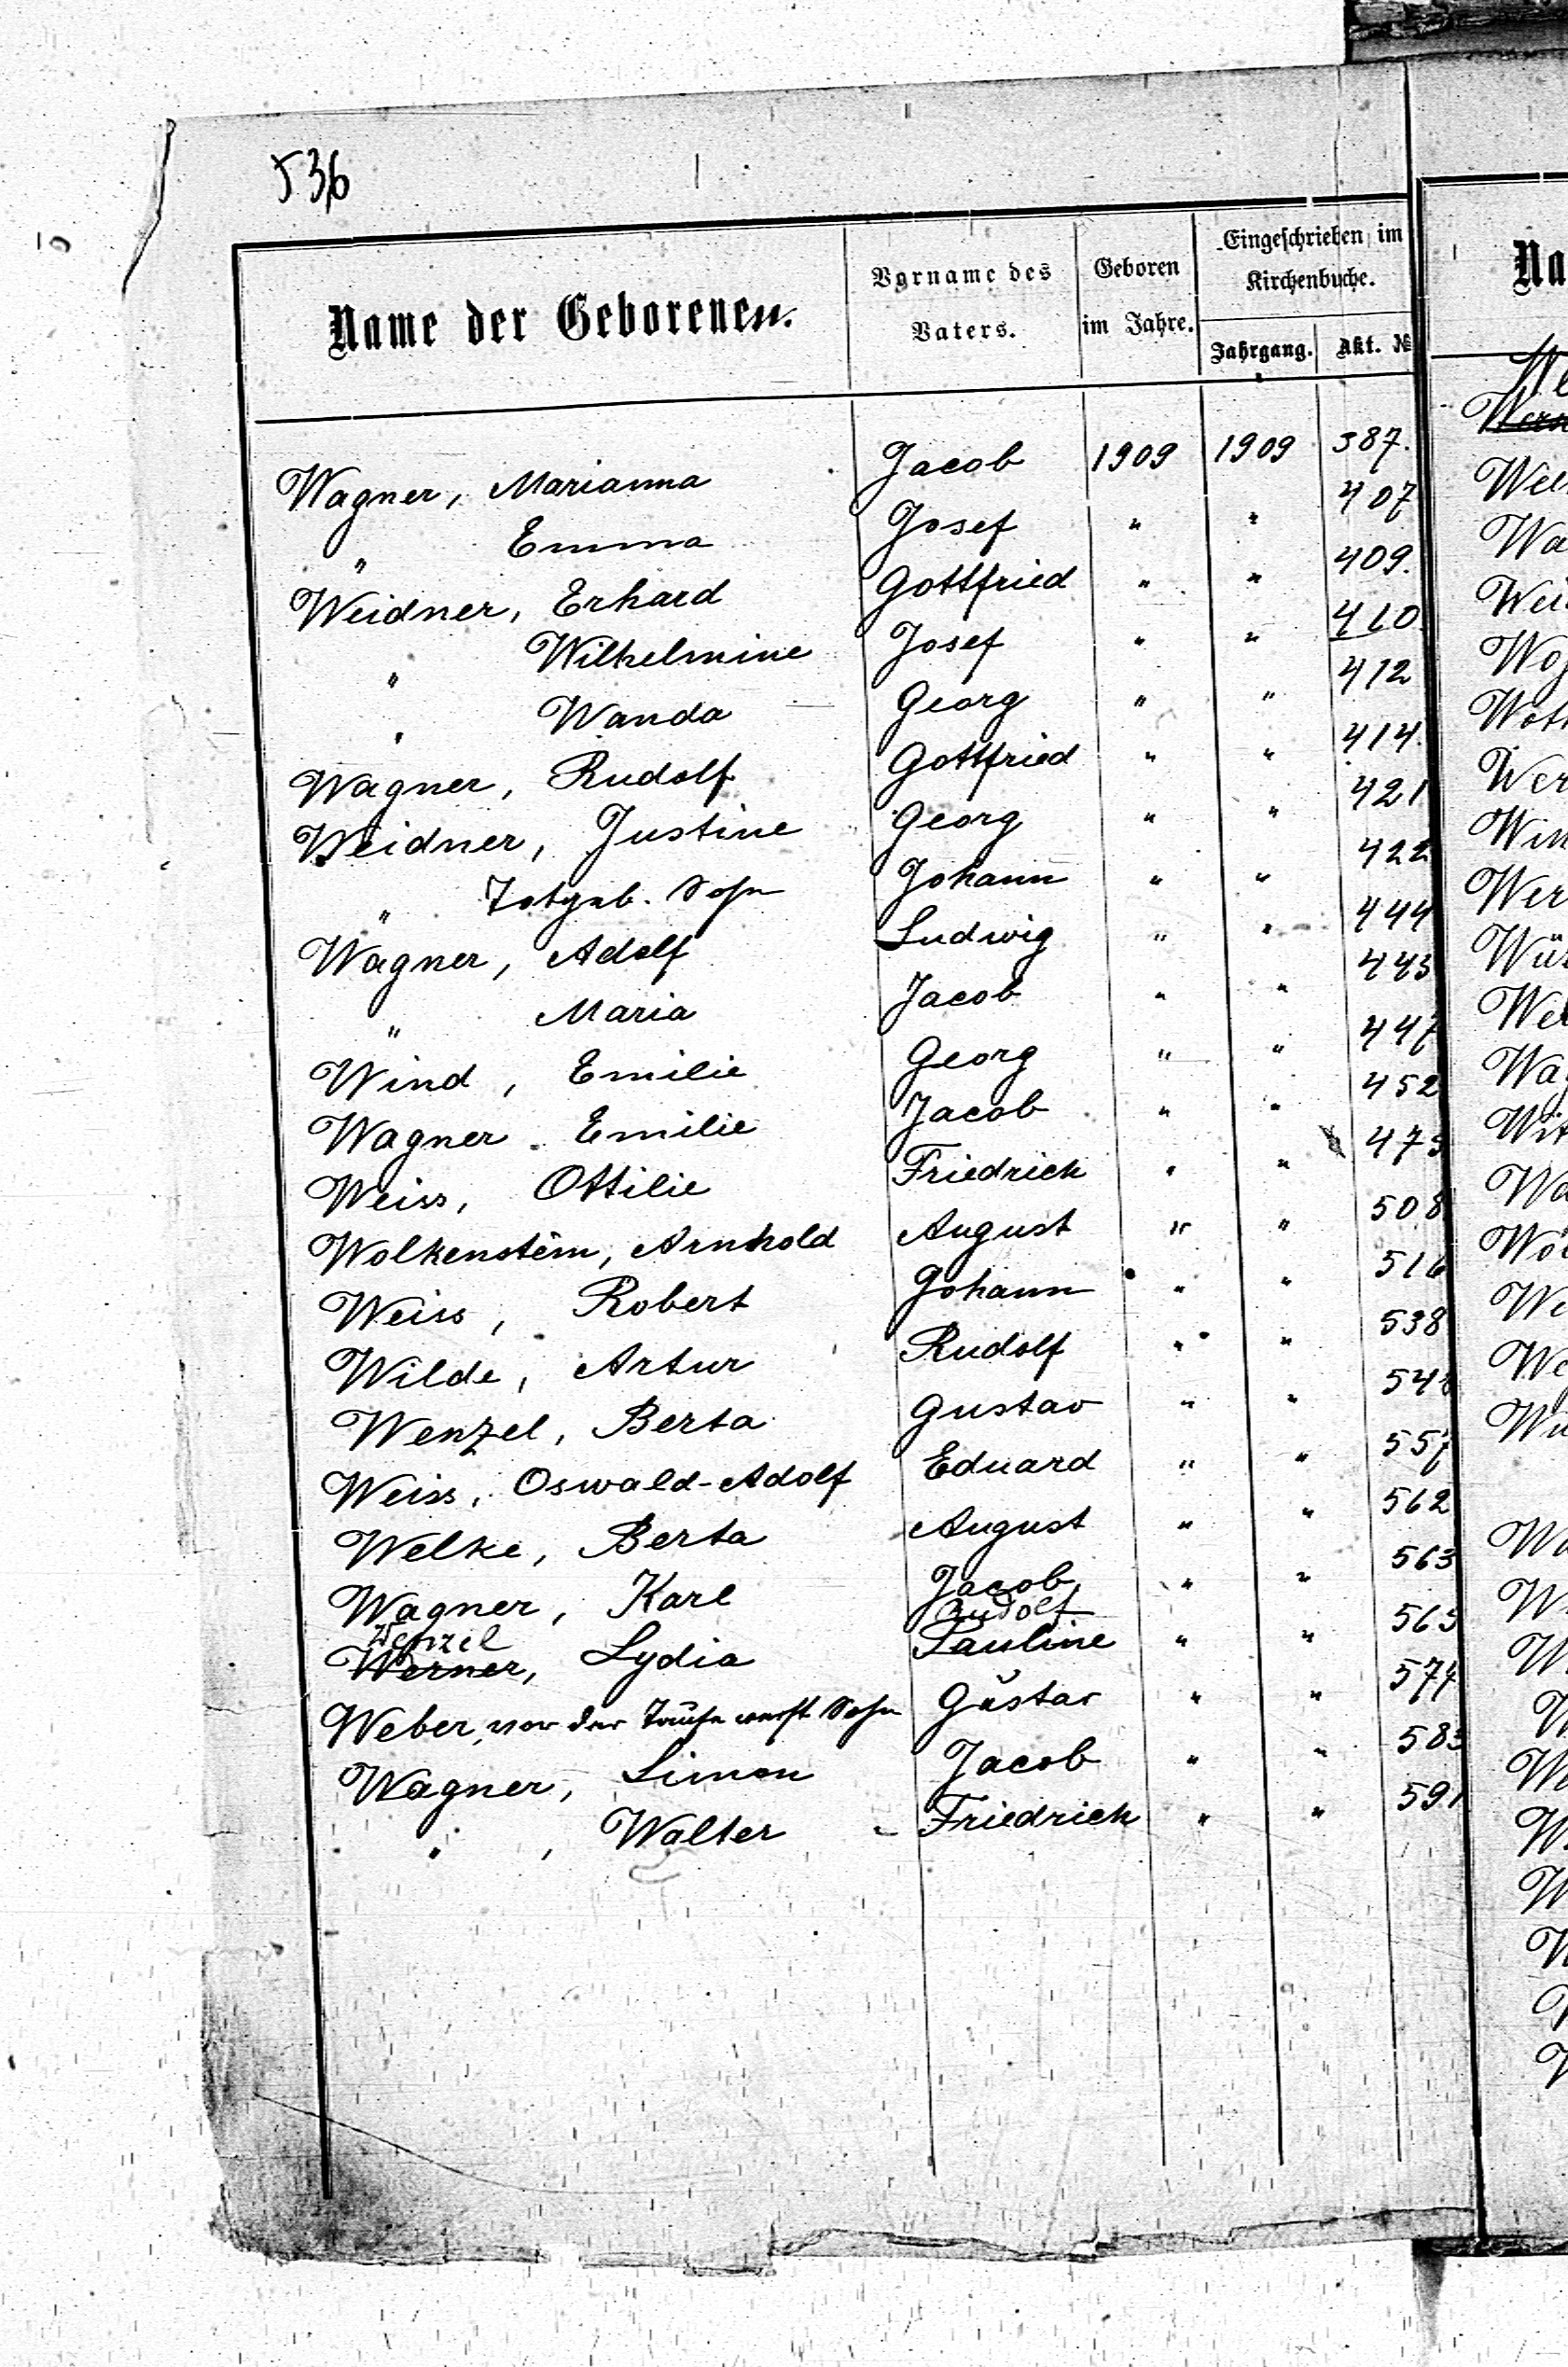 536
Name der Geborenen. Vorname des Vaters. Geboren im Jahre. Eingeschrieben im Kirchenbuche. Jahrgang. Akt. №
Wagner, Marianna Jacob 1909 1909 387.
" Emma Josef " " 407
Weidner, Erhard Gottfried " " 409.
" Wilhelmine Josef " " 410.
" Wanda Georg " " 412
Wagner, Rudolf Gottfried " " 414.
Weidner, Justine Georg " " 421
" Totgeb. Sohn Johann " " 422
Wagner, Adolf Ludwig " " 444
" Maria Jacob " " 443
Wind, Emilie Georg " " 447
Wagner Emilie Jacob " " 452
Weiss, Ottilie Friedrich " " 475
Wolkenstein, Arnhold August " " 508
Weiss, Robert Johann " " 516
Wilde, Artur Rudolf " " 538
Wenzel, Berta Gustav " "
Weiss, Oswald-Adolf Eduard " " 557
Welke, Berta August " " 562
Wagner, Karl Jacob " " 563
Wenzel Rudolf
Werner, Lydia Pauline " " 565
Weber, vor der Taufe verst. Sohn Gustav " " 574
Wagner, Simon Jacob " " 583
" , Walter Friedrich " " 591